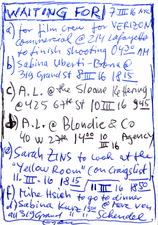 WAITING FOR 7 III 16 NYC
a) for film crew for VERIZON
commercial @ 214 Lafayette
to finish shooting 04:30 AM
b) Sabina Uberti-Bona @
319 Grand St 8 III 16 18:15
c) A.L. @ the Sloane Kettering
@ 425 67th St 10 III 16 9:45
d) A.L. @ Blondie & Co
40 W 23rd 14:00 10 III 16 Agency
e) Sarah ZINS to look at the
"Yellow Room" (on Craigslist)
11. III - 16 18:15
f) Mike Hsieh to go to dinner
11 III 16 18:50
g) Sabina
at 319 Grand Schendel